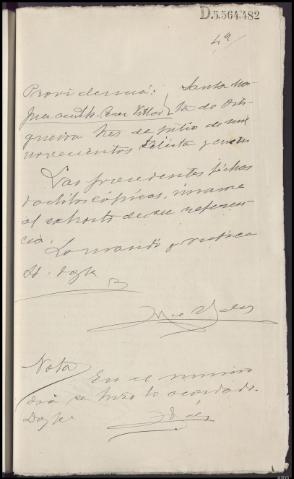 D.5.564.482
4ª
Providencia: Santa Ma-
Juez accidtl. Perez Villar ta de Orti-
gueira tres de julio de mil
novecientos treinta y
Las precedentes fichas
dactiloscópicas, únanse
al exhorto de su referen-
cia.
Lo mandó y rubrica
Sª. Doy fe
Nota
En el mismo
día se hizo lo acordado.
Doy fe